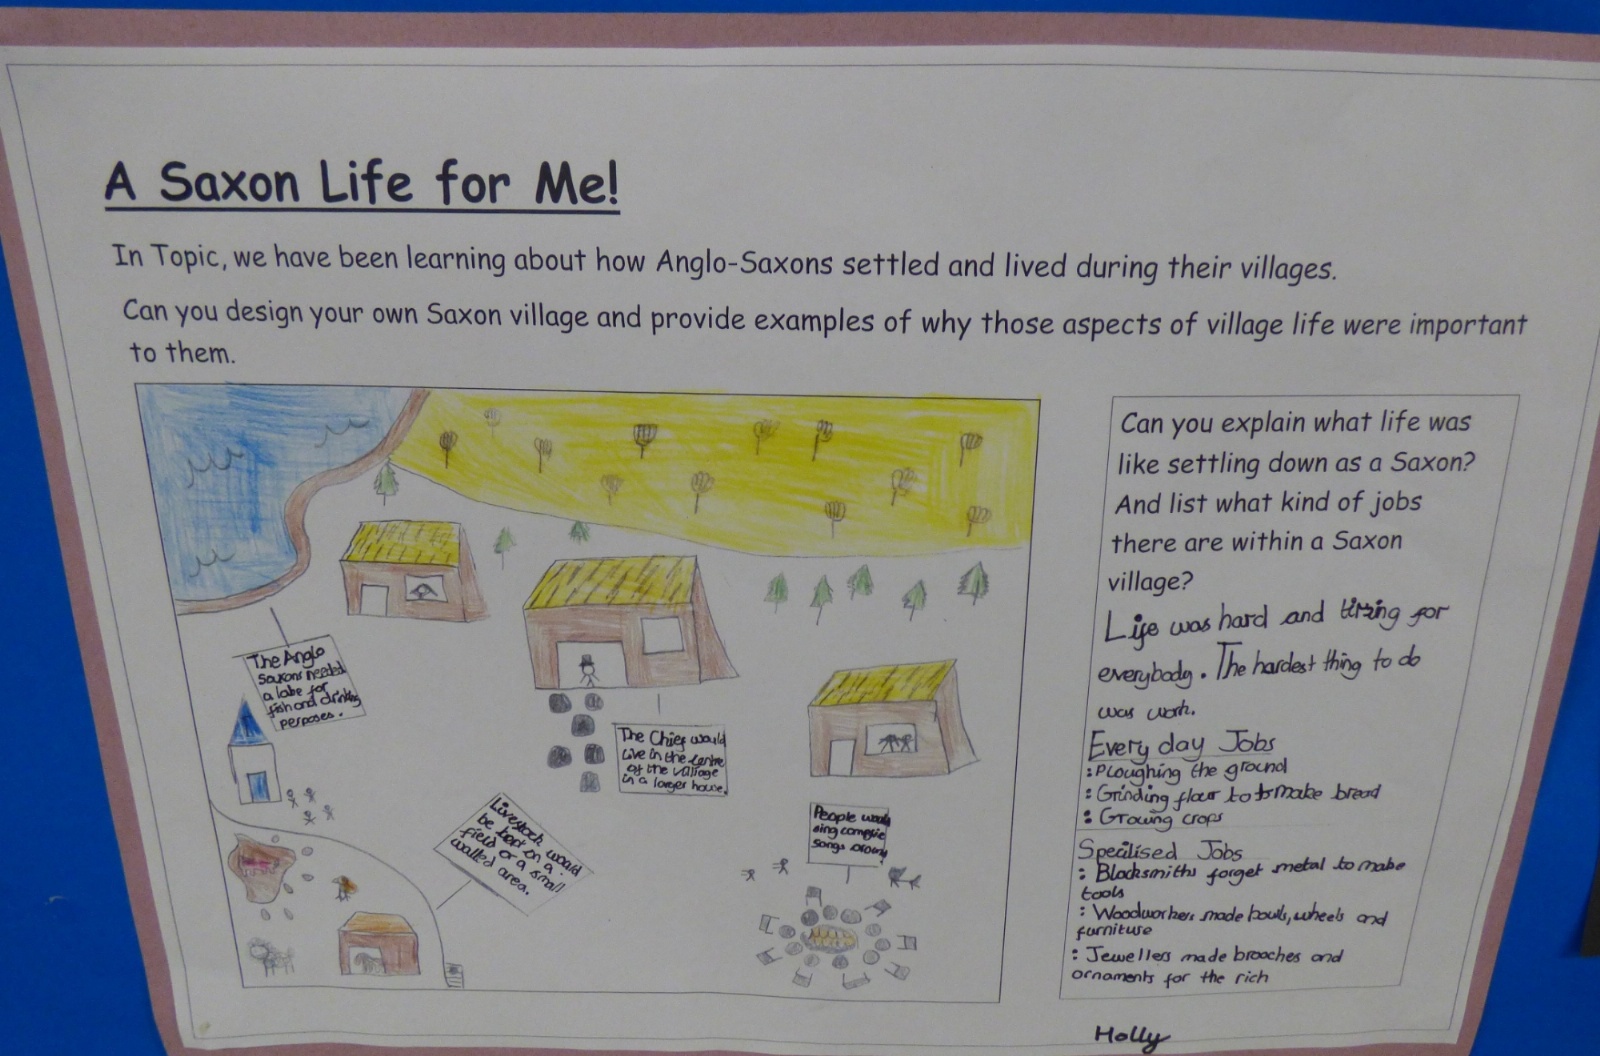 A Saxon Life for Me!
In Topic, we have been learning about how Anglo-Saxons settled and lived during their villages.
Can you design your own Saxon village and provide examples of why those aspects of village life were important
to them.
The Anglo
Saxons needed
a lake for
fish and drinking
perposes.
The Chief would
live in the centre
of the village
in a larger house.
Livestock would
be kept on a
field or a small
walled area.
People would
sing campfire
songs around
Can you explain what life was
like settling down as a Saxon?
And list what kind of jobs
there are within a Saxon
village?
Life was hard and tiring for
everybody. The hardest thing to do
was work.
Every day Jobs
:Ploughing the ground
:Grinding flour to make bread
:Growing crops
Specilised Jobs
:Blacksmiths forget metal to make
tools
:Woodworkers made bowls, wheels and
furniture
:Jewellers made brooches and
ornaments for the rich
Holly